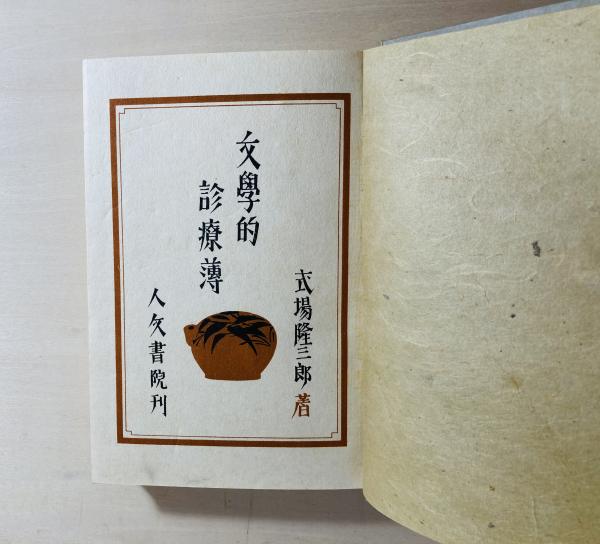 文學的
診療薄
式場隆三郎著
人文書院刊